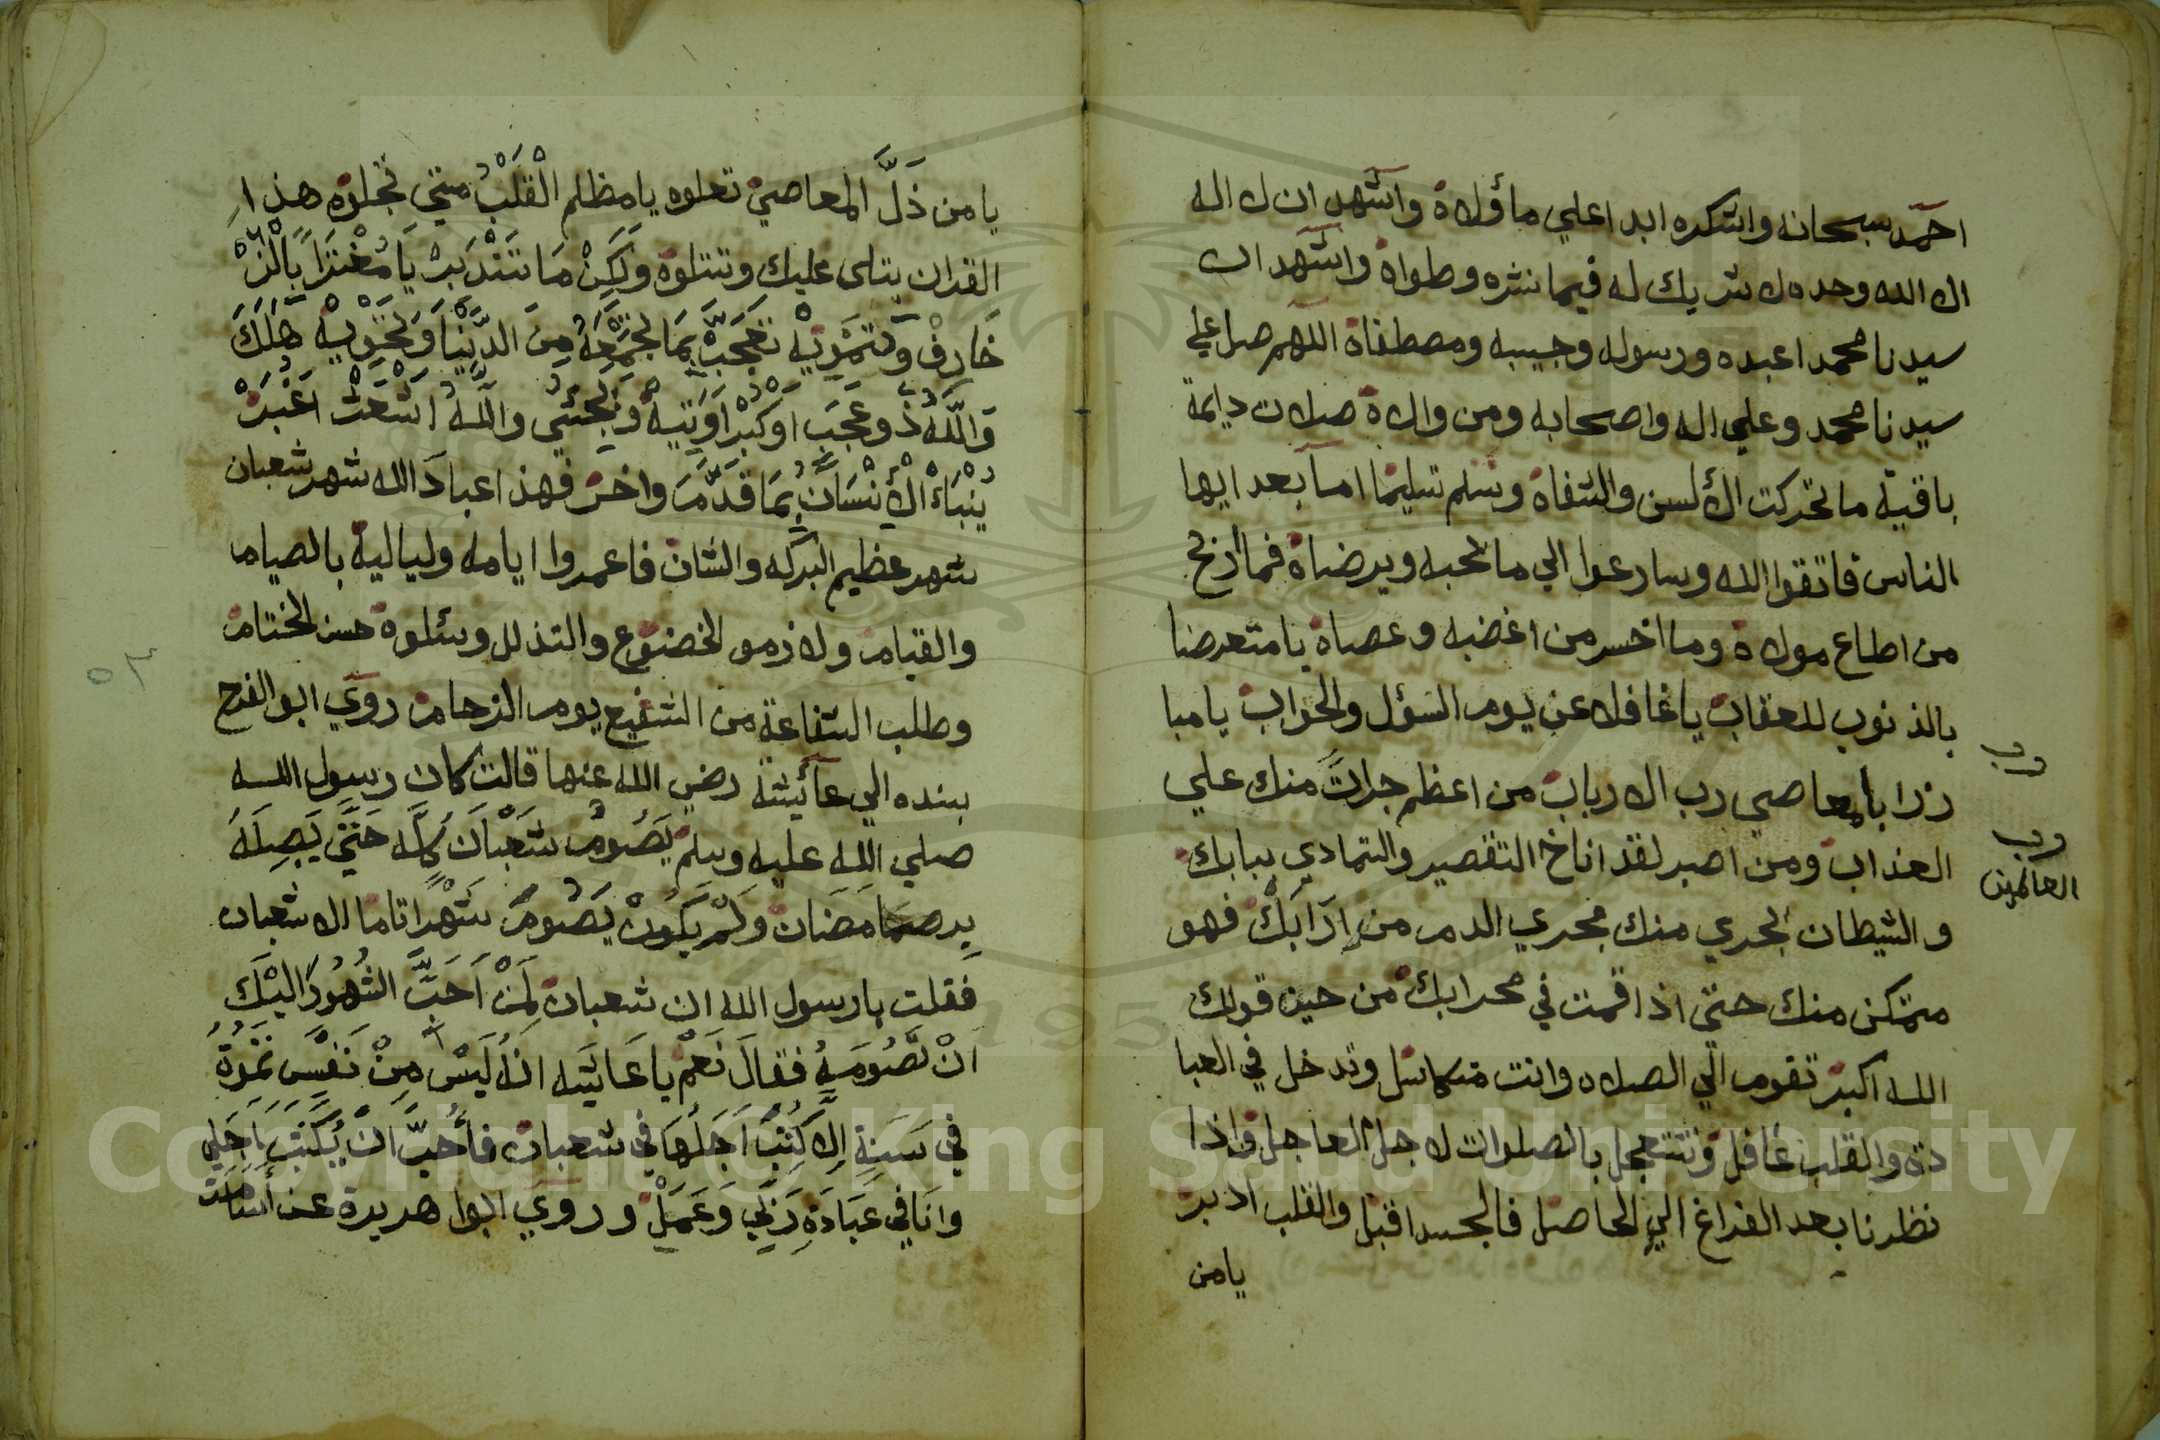 احمد سبحانه واشكره ابدا علي ما أولاه واشهد ان لا اله
الا الله وحده لا شريك له فيما نشره وطواه واشهد ان
سيدنا محمدا عبده ورسوله وحبيبه ومصطفاه اللهم صل علي
سيدنا محمد وعلي اله واصحابه ومن والاه صلات دايمة
باقية ما تحركت الألسن والشفاه وسلم تسليما اما بعد ايها
الناس فاتقوا الله وسارعوا الي ما يحبه ويرضاه فما أربح
من اطاع مولاه وما اخسر من اغضبه وعصاه يا متعرضا
بالذنوب للعقاب يا غافلا عن يوم السؤل والجواب يا مبا
رزا بالمعاصي رب الارباب من اعظم جرات منك علي
العذاب ومن اصبر لقد اناخ التقصير والتمادي ببابك
والشيطان يجري منك مجري الدم من ارابك فهو
متمكن منك حتي اذا قمت في محرابك من حين قولك
الله اكبر تقوم الي الصلاه وانت متكاسل وتدخل في العبا
دة والقلب غافل وتتعجل بالصلوات لاجل العاجل واذا
نظرنا بعد الفراغ الي الحاصل فالجسد اقبل والقلب ادبر
يا من
رب
رب
العالمين
يا من ذل المعاصي تعلوه يا مظلم القلب متي تجلوه هذا
القران يتلى عليك وتتلوه ولكن ما تتدبر يا مغترا بالز
خارف وتمريه تعجب بما تجمعه من الدنيا وتحويه هلك
والله ذو عجب او كبر او تيه ويجثي والله اشعث اغبر
ينباء الأنسان بما قدم واخر فهذا عباد الله شهر شعبان
شهر عظيم البركه والشان فاعمروا ايامه ولياليه بالصيام
والقيام ولازمو الخضوع والتذلل وسئلوه حسن الختام
وطلب الشفاعة من الشفيع يوم الزحام روي ابو الفرج
بسنده الي عائيشة رضي الله عنها قالت كان رسول الله
صلي الله عليه وسلم يصوم شعبان كله حتي يصله
برمضان ولم يكون يصوم شهرا تاما الا شعبان
فقلت يا رسول الله ان شعبان لمن احب الشهور اليك
ان تصومه فقال نعم يا عايشه انه ليس من نفس تموت
في سنة الا كتب اجلها في شعبان فأحب ان يكتب اجلي
وانا في عبادة ربي وعمل وروي ابوا هريرة عن أسامت
٥٣
Copyright © King Saud University
195